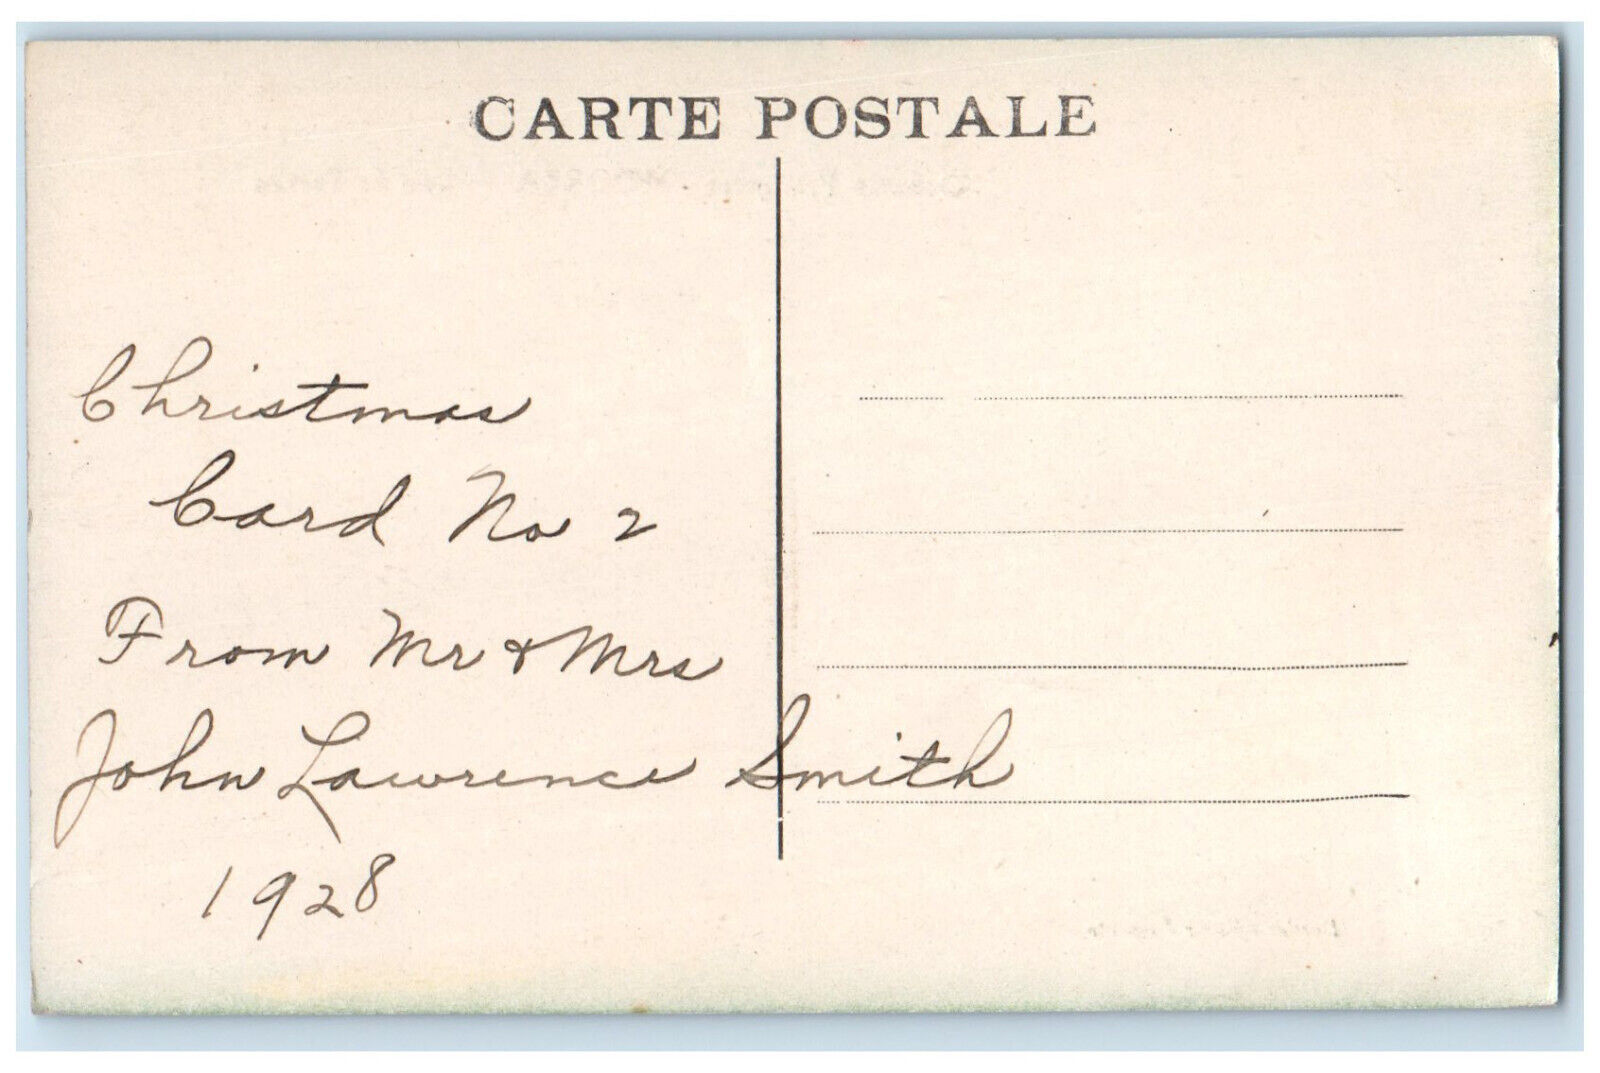 CARTE POSTALE
Christmas
Card No 2
From Mr & Mrs
John Lawrence Smith
1928